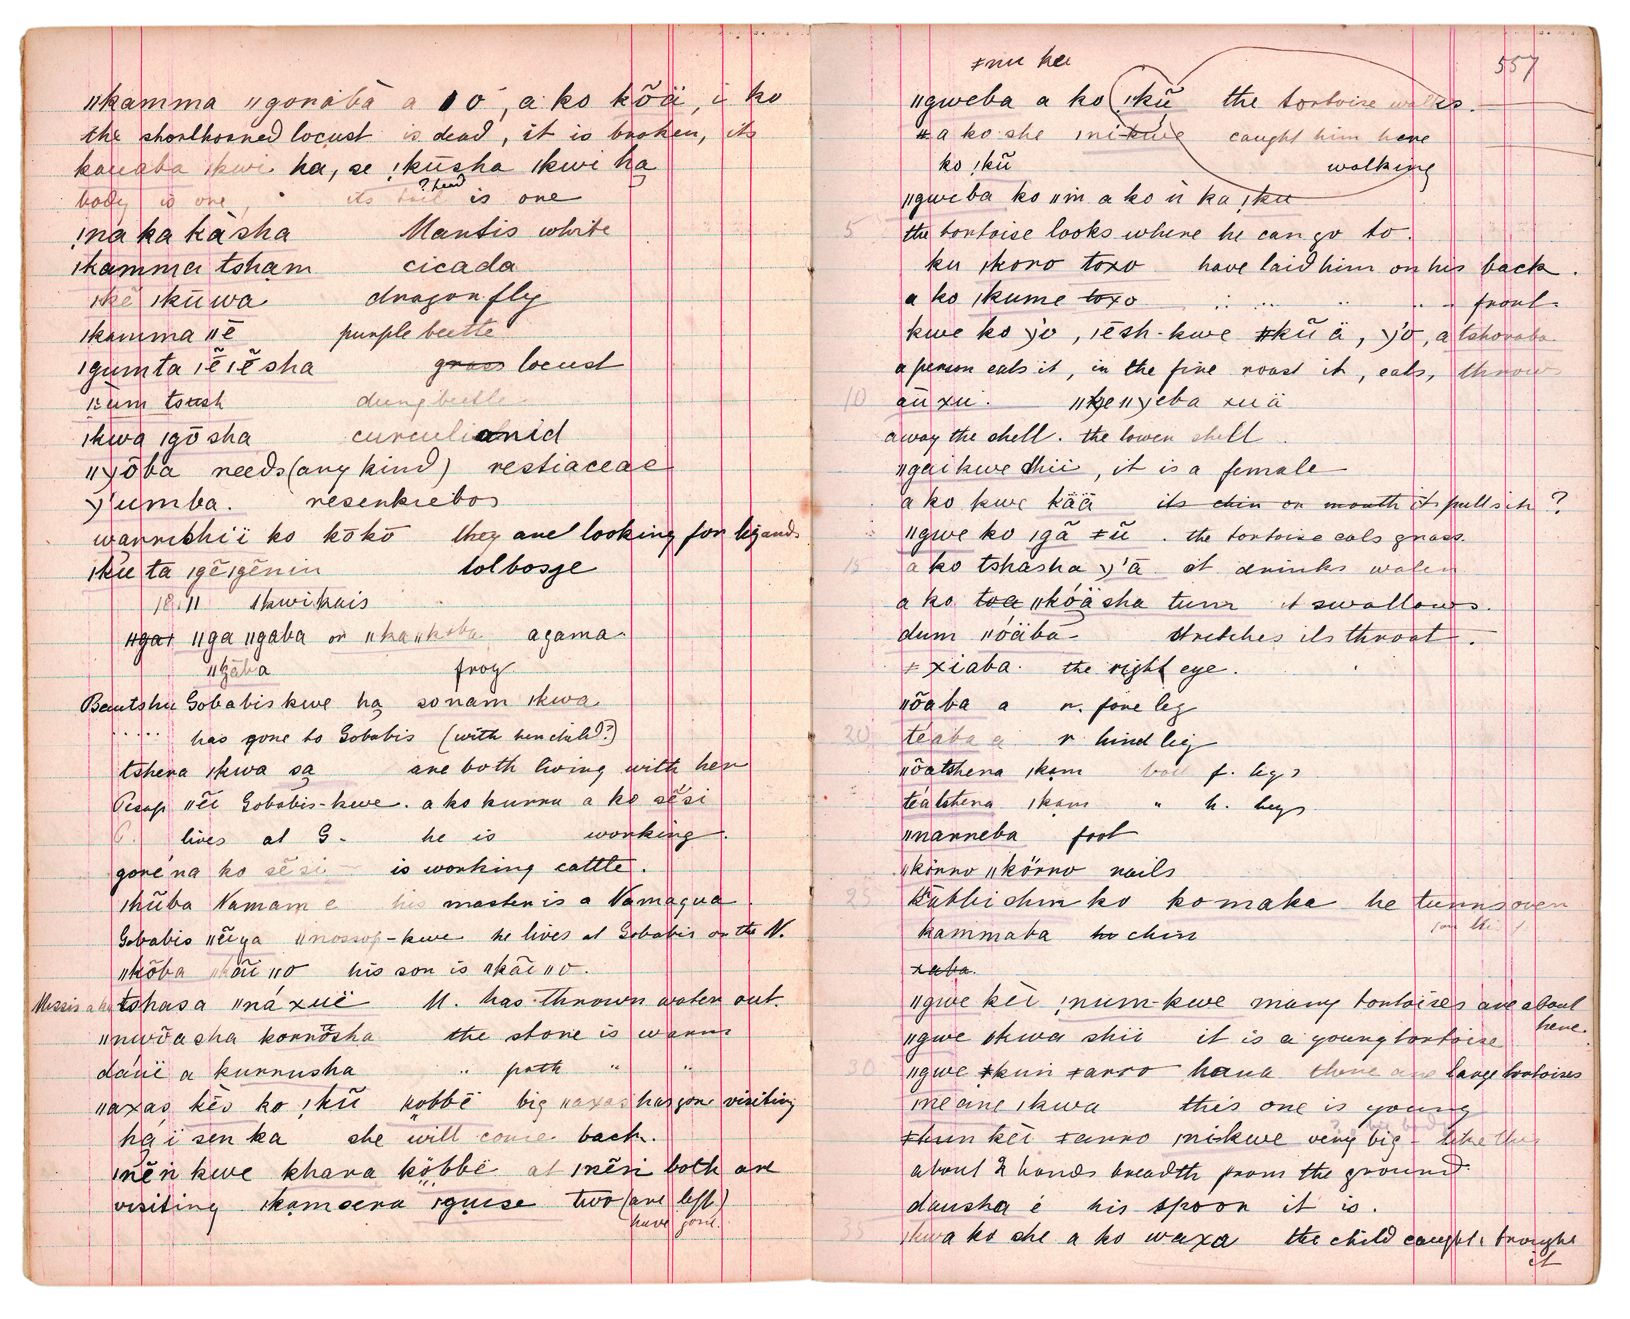 "kamma "gonába a ó, a ko kõä, i ko
the shorthorned locust is dead, it is broken, its
kauaba ıkwi ha, se !kũsha ıkwi ha
body is one, its tail ? head is one
!na ka kàsha Mantis white
ıkamma tsham cicada
ıkẽ ıkũwa dragon fly
ıkamma "ẽ purple beetle
ıgumta ıẽ ıẽsha grass locust
dung beetle
ıkwa ıgõsha curculianid
"yõba reeds (any kind) restiaceae
y'umba. resenkiebos
warrishi'i ko kõkõ they are looking for lizards
ıkũ ta ıgẽıgẽnin tolbosje
18.11 ıkwikais
"gaı "ga "gaba or "ka "kaba agama
"gãba frog
Bautshu Gobabis kwe ha sonam ıkwa
..... has gone to Gobabis (with her child?)
tshera ıkwa sa are both living with her
Pesap "ẽi Gobabis-kwe. a ko kurru a ko sẽsi
P. lives at G. he is working.
goré na ko sẽsi is working cattle.
ıkũba Namam e his master is a Namaqua
Gobabis "ẽi ya "nossop-kwe he lives at Gobabis on the N.
"kõba "kãi "o his son is "kãi "o.
Messis a ko tshasa "ná xuë M. has thrown water out.
"nwõasha korrõsha the stone is warm
dáüë a kurrusha " path " "
"axas kẽi ko !kũ kobbë big "axas has gone visiting
há'i sen ka she will come back.
ıñẽri kwe khara köbbë at ıñẽri both are
visiting ıkamsera ıguise two (are left)
have gone.
ǂnu ka
557
"gweba a ko !kũ the tortoise walks.
ǂ a ko she ıni kwe caught him here
ko !kũ walking
"gweba ko "m a ko ù ka !ku
5 the tortoise looks where he can go to.
ku ıkoro toxo have laid him on his back.
a ko ıkume toxo " " " " front
kwe ko y'o, ıẽsh-kwe ǂkũ ä, y'o, a tshoraba
a person eats it, in the fire roast it, eats, throws
10 aũ xu. "ke "yeba xuä
away the shell. the lower shell
"gaikwe shii, it is a female
a ko kwe kää its chin or mouth it pulls in?
"gwe ko ıgã ǂũ. the tortoise eats grass
15 a ko tshasha y'ã it drinks water
a ko toa "kóäsha tum it swallows.
dum "óäba stretches its throat.
ǂxiaba. the right eye.
"õaba a r. fore leg
20 téaba a r hind leg
"õatshera ıkam both f. legs
teatshera ıkam " h. legs
"narreba foot
"körro "körro nails
25 Käbbi shin ko komaka he turns over
kammaba his chin
xaba.
"gwe kẽi !num-kwe many tortoises are about
here.
"gwe ıkwa shii it is a young tortoise
30 "gwe ǂkuri ǂarro hana there are large tortoises
ıne ane ıkwa this one is young
ǂkuri kẽi ǂarro ıniskwe very big - like this
about 2 hands breadth from the ground
dausha é his spoor it is.
35 ıkwa ko she a ko waxa the child caught brought
it